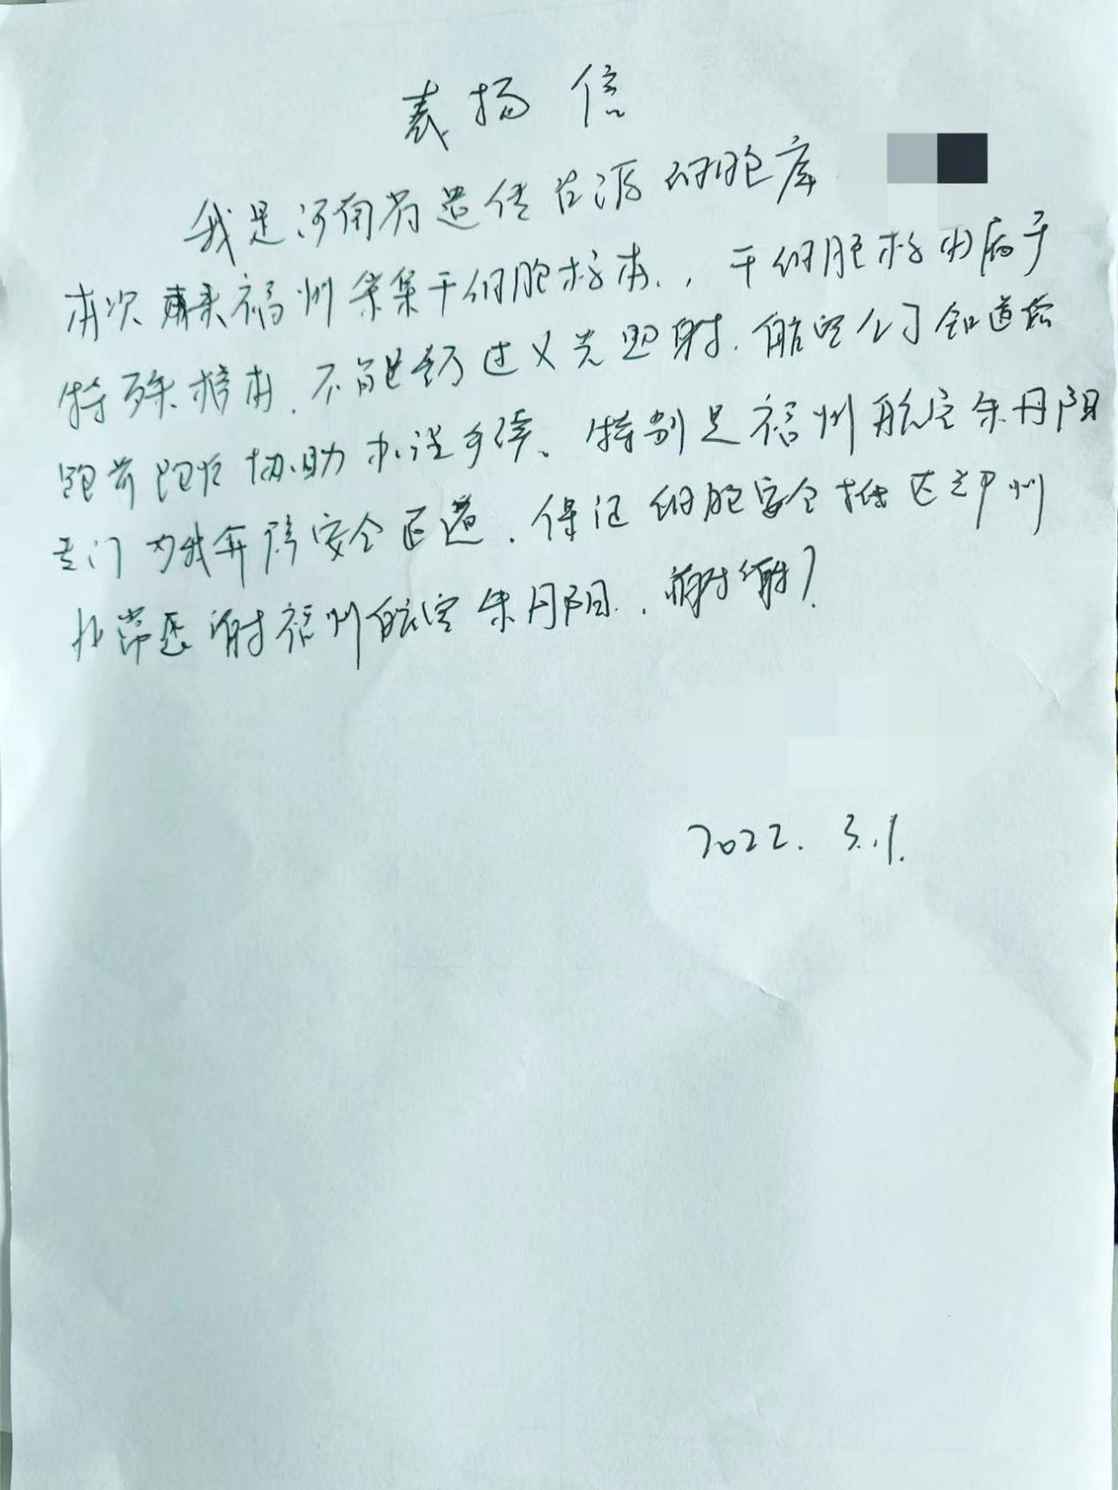 表扬信
我是河南省遗传资源细胞库
本次来福州采集干细胞标本, 干细胞标本属于
特殊标本, 不能经过X光照射, 航空公司知道后
跑前跑后协助办证手续、特别是福州航空朱丹阳
专门为我开辟安全通道, 保证细胞安全抵达郑州
非常感谢福州航空朱丹阳, 谢谢!
2022. 3.1.